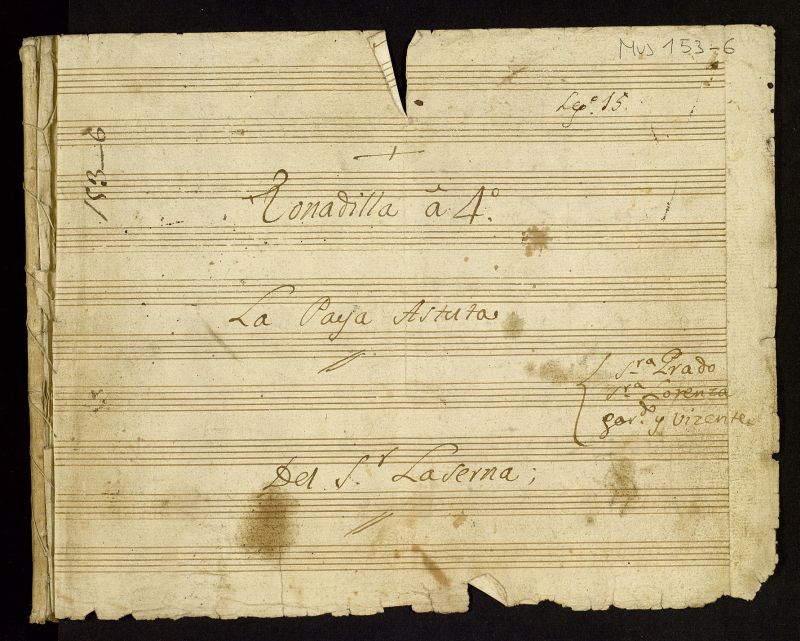 Mus 153-6
Lego. 15.
153-6
Tonadilla â 4º.
La Paya Astuta
Sra. Prado
Sra. Lorenza
y Vizente.
Del Sr. Laserna;